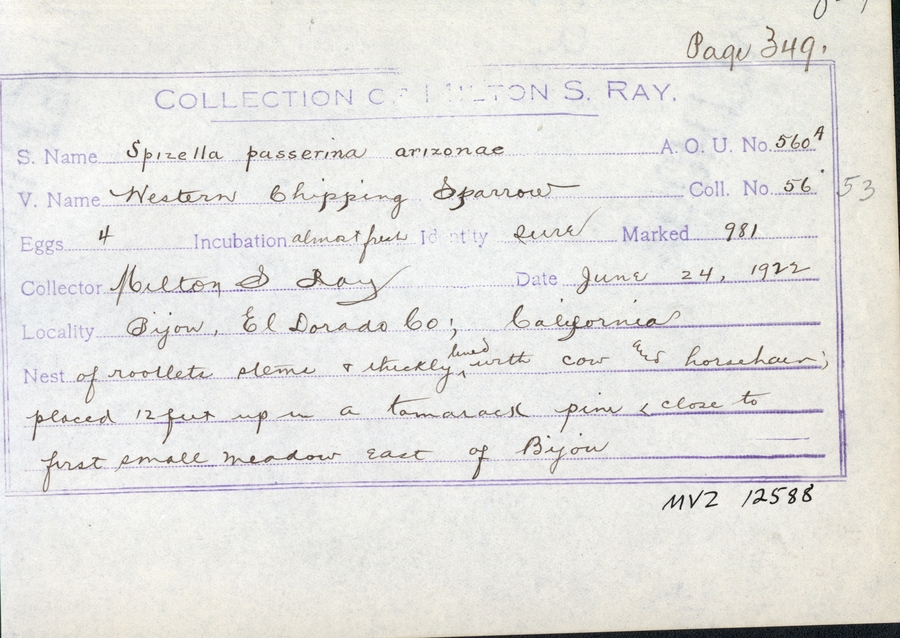 Page 349.
COLLECTION OF MILTON S. RAY.
S. Name Spizella passerina arizonae A. O. U. No. 560A
V. Name Western Chipping Sparrow Coll. No. 56 53
Eggs 4 Incubation almost fresh Identity sure Marked 981
Collector Milton S Ray Date June 24, 1922
Locality Bijou, El Dorado Co; California
Nest of rootlets stems & thickly lined with cow and horsehair;
placed 12 feet up in a tamarack pine & close to
first small meadow east of Bijou
MVZ 12588